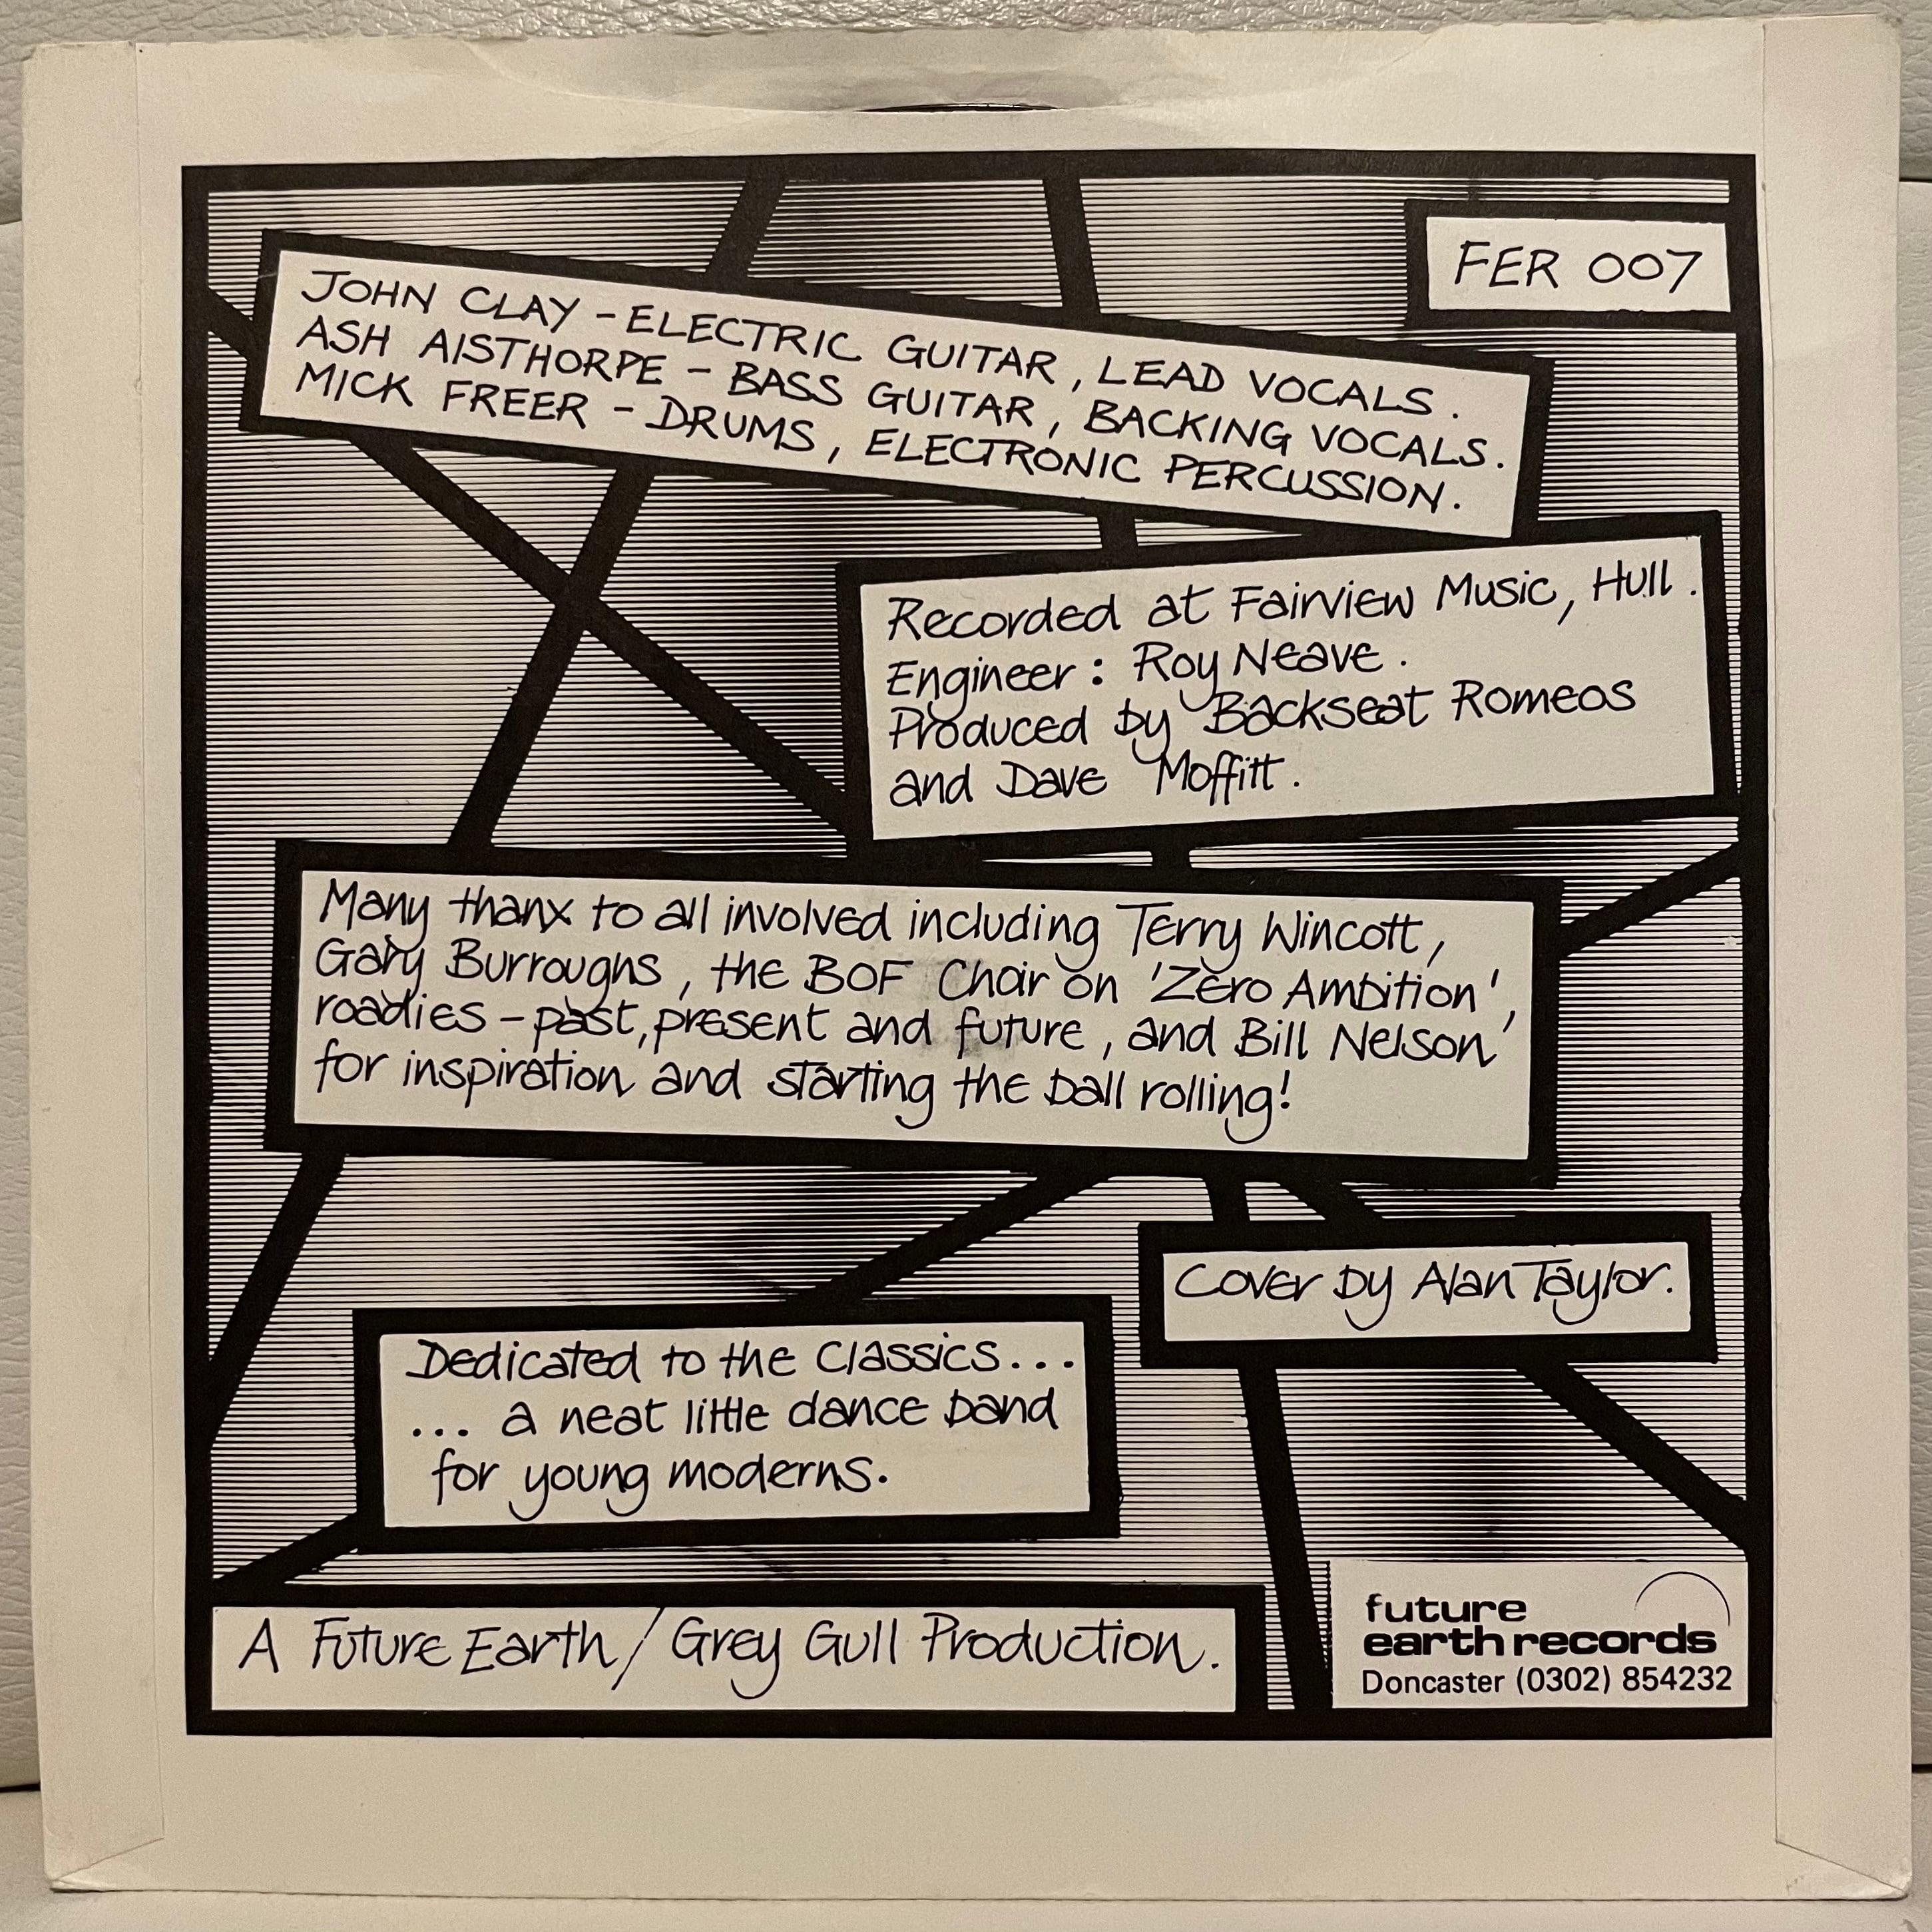 FER 007
JOHN CLAY - ELECTRIC GUITAR, LEAD VOCALS.
ASH AISTHORPE - BASS GUITAR, BACKING VOCALS.
MICK FREER - DRUMS, ELECTRONIC PERCUSSION.
Recorded at Fairview Music, Hull.
Engineer: Roy Neave.
Produced by Backseat Romeos
and Dave Moffitt.
Many thanx to all involved including Terry Wincott,
Gary Burroughs, the BOF Choir on 'Zero Ambition',
roadies - past, present and future, and Bill Nelson
for inspiration and starting the ball rolling!
Cover by Alan Taylor.
Dedicated to the Classics...
... a neat little dance band
for young moderns.
A Future Earth/Grey Gull Production.
future
earth records
Doncaster (0302) 854232